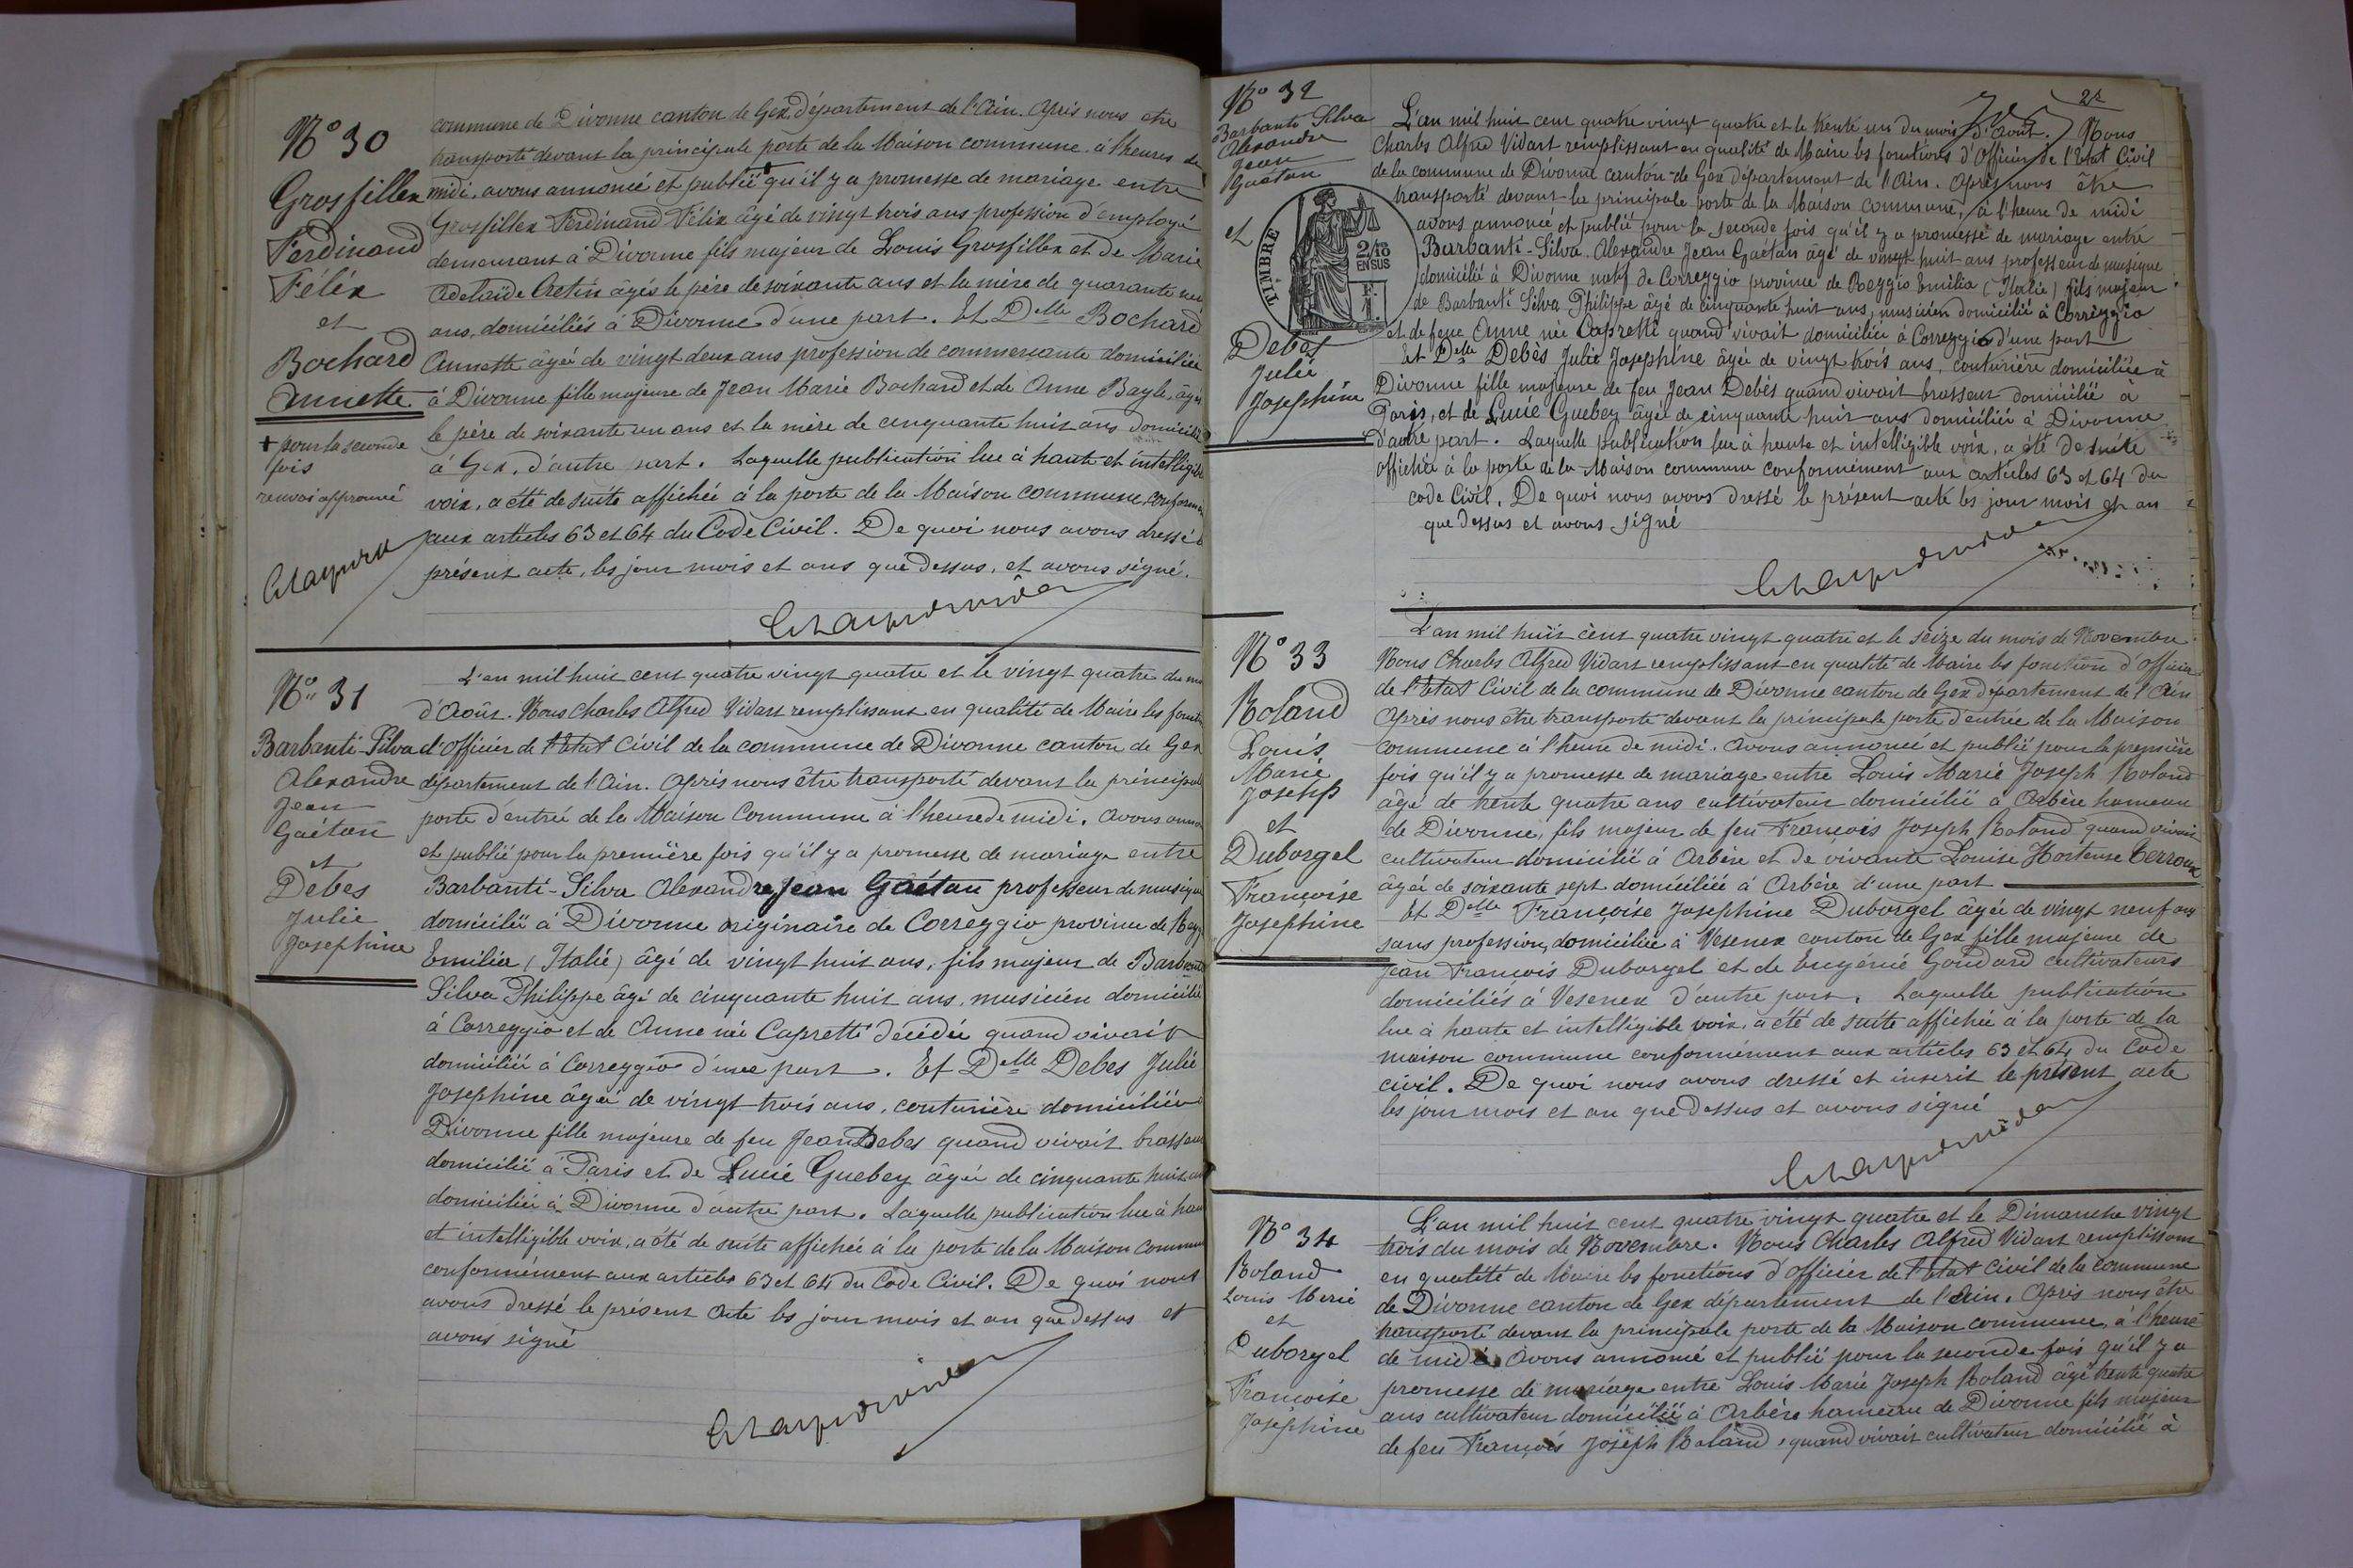 N° 30
Grosfillex
Ferdinand
Félix
et
Bochard
Annette
+ pour la seconde
fois
renvoi approuvé
commune de Divonne canton de Gex, département de l'Ain. Après nous etre
transporté devant la principale porte de la Maison commune à l'heures de
midi, avons annoncé et publié + qu'il y a promesse de mariage entre
Grosfillex Ferdinand Félix âgé de vingt trois ans profession d'employé
demeurant à Divonne fils majeur de Louis Grosfillex et de Marie
Adelaïde âgés le père de soixante ans et la mère de quarante neuf
ans, domiciliés à Divonne d'une part. Et Delle Bochard
Annette âgée de vingt deux ans profession de commercante domiciliée
à Divonne fille majeure de Jean Marie Bochard et de Anne Bayle, âgés
le père de soixante un ans et la mère de cinquante huit ans domiciliés
à Gex, d'autre part. Laquelle publication lue à haute et intelligible
voix, a été de suite affichée à la porte de la Maison commune, conformém
aux articles 63 et 64 du Code Civil. De quoi nous avons dressé le
présent acte, les jour mois et ans que dessus, et avons signé.
N° 31
Barbanti-Silva
Alexandre
Jean
Gaétan
et
Debes
Julie
Josephine
L'an mil huit cent quatre vingt quatre et le vingt quatre du mo
d'Août. Nous Charles Alfred Vidart remplissant en qualité de Maire les foncti
d'officier de l'Etat Civil de la commune de Divonne canton de Gex
département de l'Ain. Après nous être transporté devant la principal
porte d'entrée de la Maison Commune à l'heure de midi. Avons anno
et publié pour la première fois qu'il y a promesse de mariage entre
Barbanti-Silva Alexandre Jean Gaétan professeur de musique
domicilié à Divonne originaire de Correggio province de Regg
Emilia (Italie) âgé de vingt huit ans, fils majeur de Barbanti
Silva Philippe âgé de cinquante huit ans, musicien domicilié
à Correggio et de Anne née Capretti décédée quand vivait
domiciliée à Correggio d'une part. Et Delle Debes Julie
Josephine âgée de vingt trois ans, couturière domiciliée à
Divonne fille majeure de feu Jean Debes quand vivait brasseur
domicilié à Paris et de Lucie Guebey âgée de cinquante huit ans
domiciliée à Divonne d'autre part. Laquelle publication lue à hau
et intelligible voix, a été de suite affichée à la porte de la Maison commune
conformément aux articles 63 et 64 du Code Civil. De quoi nous
avons dressé le présent Acte les jour mois et an que dessus et
avons signé
N° 32
Barbanti Silva
Alexandre
Jean
Gaétan
et
TIMBRE
2/10
EN SUS
Debes
Julie
Josephine
L'an mil huit cent quatre vingt quatre et le trente un du mois d'Août. Nous
Charles Alfred Vidart remplissant en qualité de Maire les fonctions d'Officier de l'Etat Civil
de la commune de Divonne canton de Gex département de l'Ain. Après nous être
transporté devant la principale porte de la Maison commune, à l'heure de midi
avons annoncé et publié pour la seconde fois qu'il y a promesse de mariage entre
Barbanti-Silva Alexandre Jean Gaétan âgé de vingt huit ans professeur de musique
domicilié à Divonne natif de Correggio province de Reggio Emilia (Italie) fils majeur
de Barbanti Silva Philippe âgé de cinquante huit ans, musicien domicilié à Corréggio
et de feue Anne née Capretti quand vivait domiciliée à Correggio d'une part
Et Delle Debès Julie Josephine âgée de vingt trois ans, couturière domiciliée à
Divonne fille majeure de feu Jean Debès quand vivait brasseur domicilié à
Paris, et de Lucie Guebey âgée de cinquante huit ans domiciliée à Divonne
d'autre part. Laquelle publication lue à haute et intelligible voix, a été de suite
affichée à la porte de la Maison commune conformément aux articles 63 et 64 du
code Civil. De quoi nous avons dressé le présent acte les jour mois et an
que dessus et avons signé
N° 33
Roland
Louis
Marie
Joseph
et
Duborgel
Françoise
Josephine
L'an mil huit cent quatre vingt quatre et le seize du mois de Novembre
Nous Charles Alfred Vidart remplissant en qualité de Maire les fonction d'Officier
de l'Etat Civil de la commune de Divonne canton de Gex département de l'Ain
Après nous être transporté devant la principale porte d'entrée de la Maison
commune à l'heure de midi. Avons annoncé et publié pour la première
fois qu'il y a promesse de mariage entre Louis Marie Joseph Roland
âgé de trente quatre ans cultivateur domicilié à Arbère hameau
de Divonne, fils majeur de feu François Joseph Roland quand vivait
cultivateur domicilié à Arbère et de vivante Louise Hortense Perroux
âgée de soixante sept domiciliée à Arbère d'une part
Et Delle Françoise Josephine Duborgel âgée de vingt neuf ans
sans profession, domiciliée à Vesenex canton de Gex fille majeure de
Jean François Duborgel et de Eugénie Goudard cultivateurs
domiciliés à Vesenex d'autre part. Laquelle publication
lue à haute et intelligible voix, a été de suite affichée à la porte de la
maison commune conformément aux articles 63 et 64 du Code
civil. De quoi nous avons dressé et inscrit le présent acte
les jour mois et an que dessus et avons signé
N° 34
Roland
Louis Marie
et
Duborgel
Françoise
Josephine
L'an mil huit cent quatre vingt quatre et le Dimanche vingt
trois du mois de Novembre. Nous Charles Alfred Vidart remplissant
en qualité de Maire les fonctions d'officier de l'Etat Civil de la commune
de Divonne canton de Gex département de l'Ain. Après nous être
transporté devant la principale porte de la Maison commune, à l'heure
de midi. Avons annoncé et publié pour la seconde fois qu'il y a
promesse de mariage entre Louis Marie Joseph Roland âgé trente quatre
ans cultivateur domicilié à Arbère hameau de Divonne fils majeur
de feu François Joseph Roland, quand vivait cultivateur domicilié à